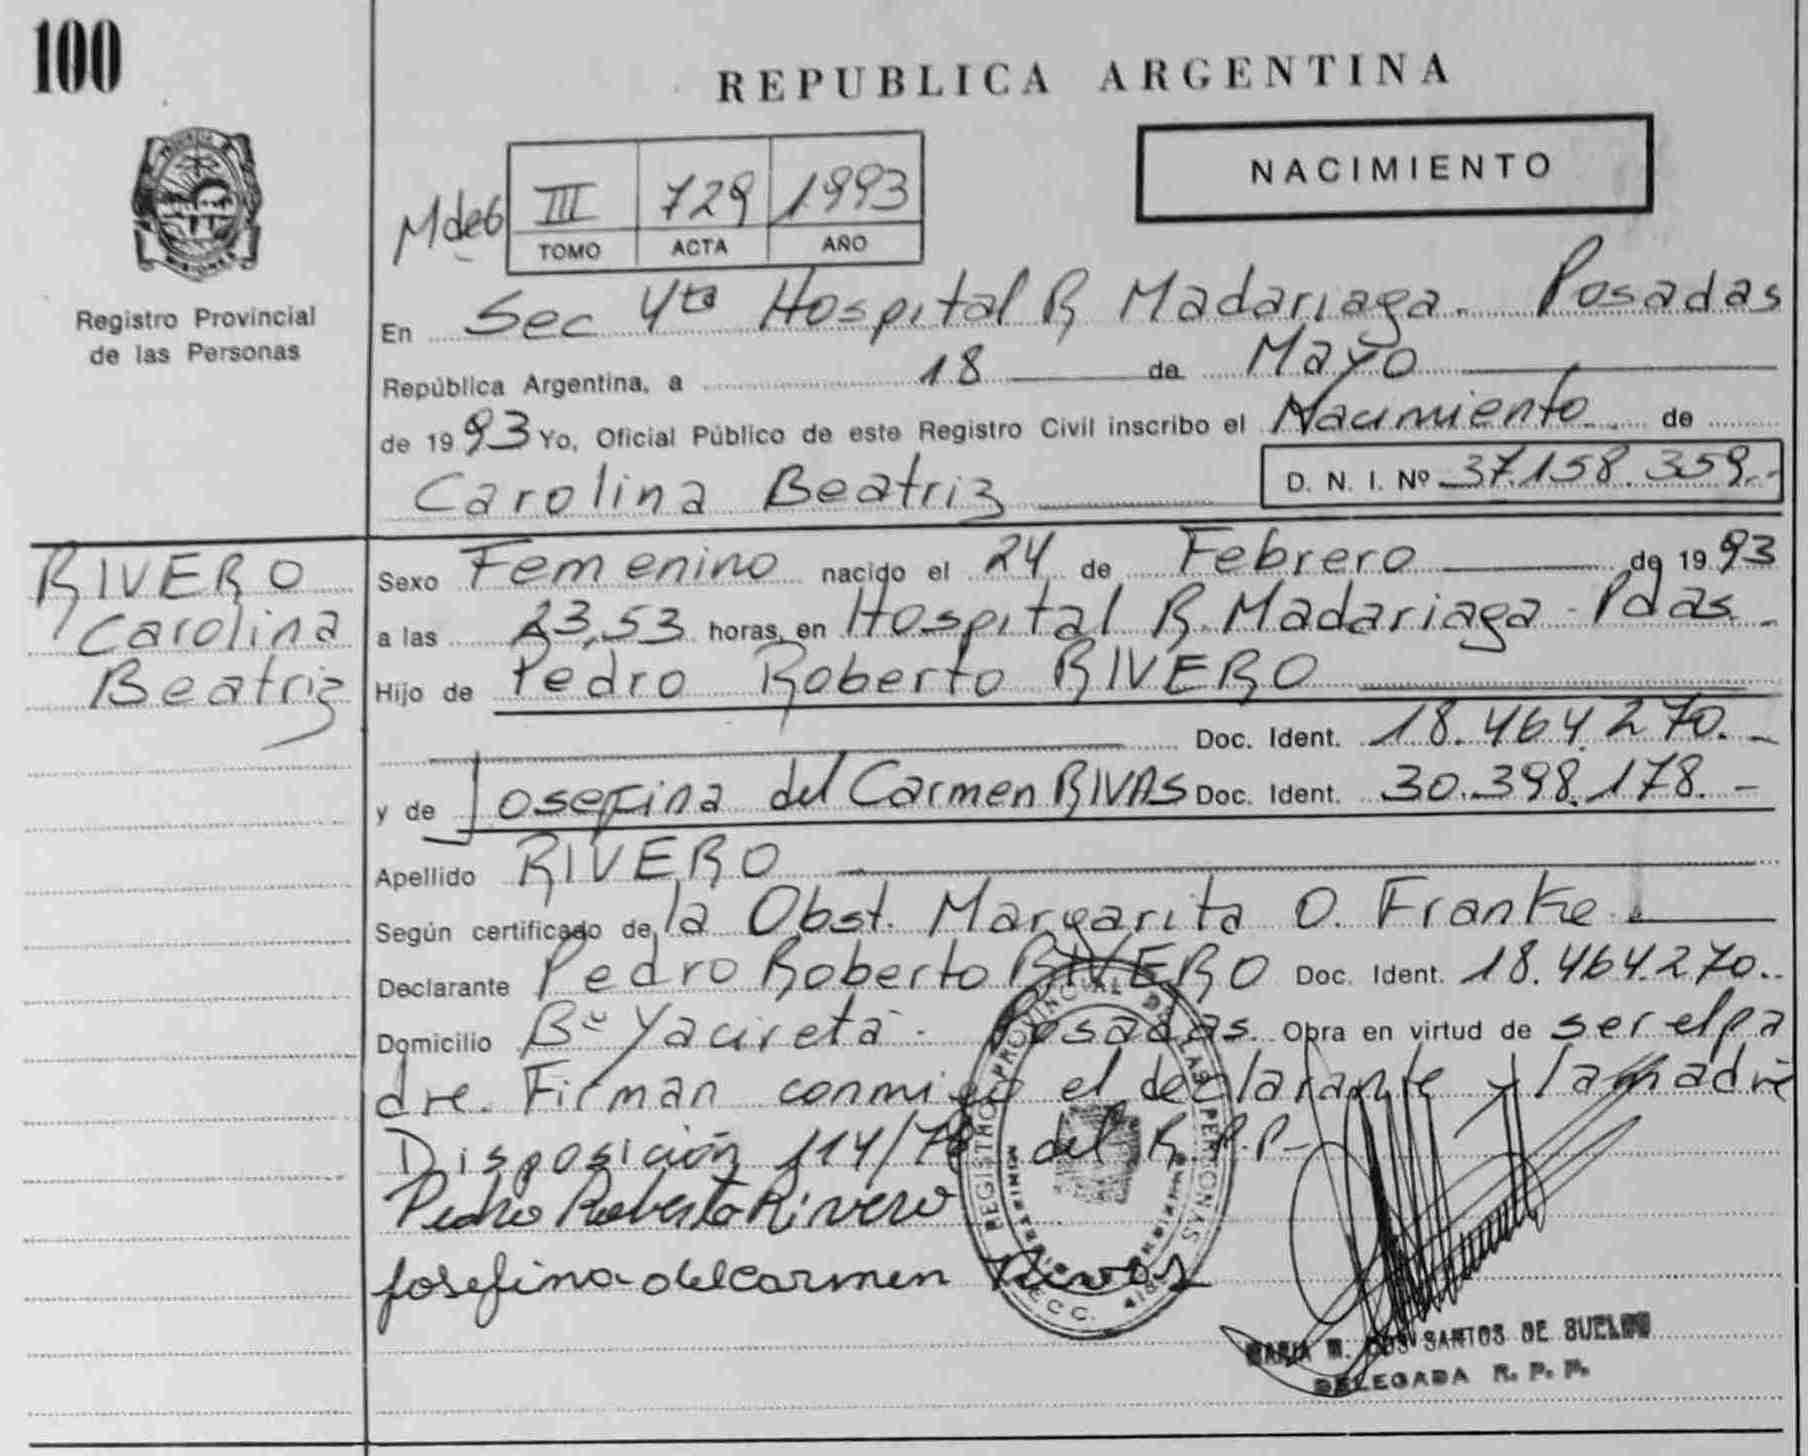 100
REPUBLICA ARGENTINA
NACIMIENTO
III 729 1993
TOMO ACTA AÑO
MISIONES
Registro Provincial
de las Personas
En Sec 4ta Hospital R Madariaga. Posadas
República Argentina, a 18 de Mayo
de 1993 Yo, Oficial Público de este Registro Civil inscribo el Nacimiento de
Carolina Beatriz D. N. I. Nº 37.158.359.-
RIVERO
Carolina
Beatriz
Sexo Femenino nacido el 24 de Febrero de 1993
a las 23,53 horas, en Hospital R. Madariaga - Pdas.
Hijo de Pedro Roberto RIVERO
Doc. Ident. 18.464.270.-
y de Josefina del Carmen RIVAS Doc. Ident. 30.398.178.-
Apellido RIVERO
Según certificado de la Obst. Margarita O. Franke.
Declarante Pedro Roberto RIVERO Doc. Ident. 18.464.270..
Domicilio Bº Yacireta - Posadas. Obra en virtud de ser el pa
dre. Firman conmigo el declarante y la madre
Disposición 114/78 del R.P.P-
Pedro Roberto Rivero
Josefina del carmen Rivas
REGISTRO PROVINCIAL DE LAS PERSONAS
MARIA M. DOS SANTOS DE
DELEGADA R. P. P.